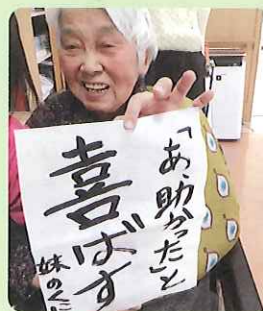 「あ、助かった」と
喜ばす
妹のくに